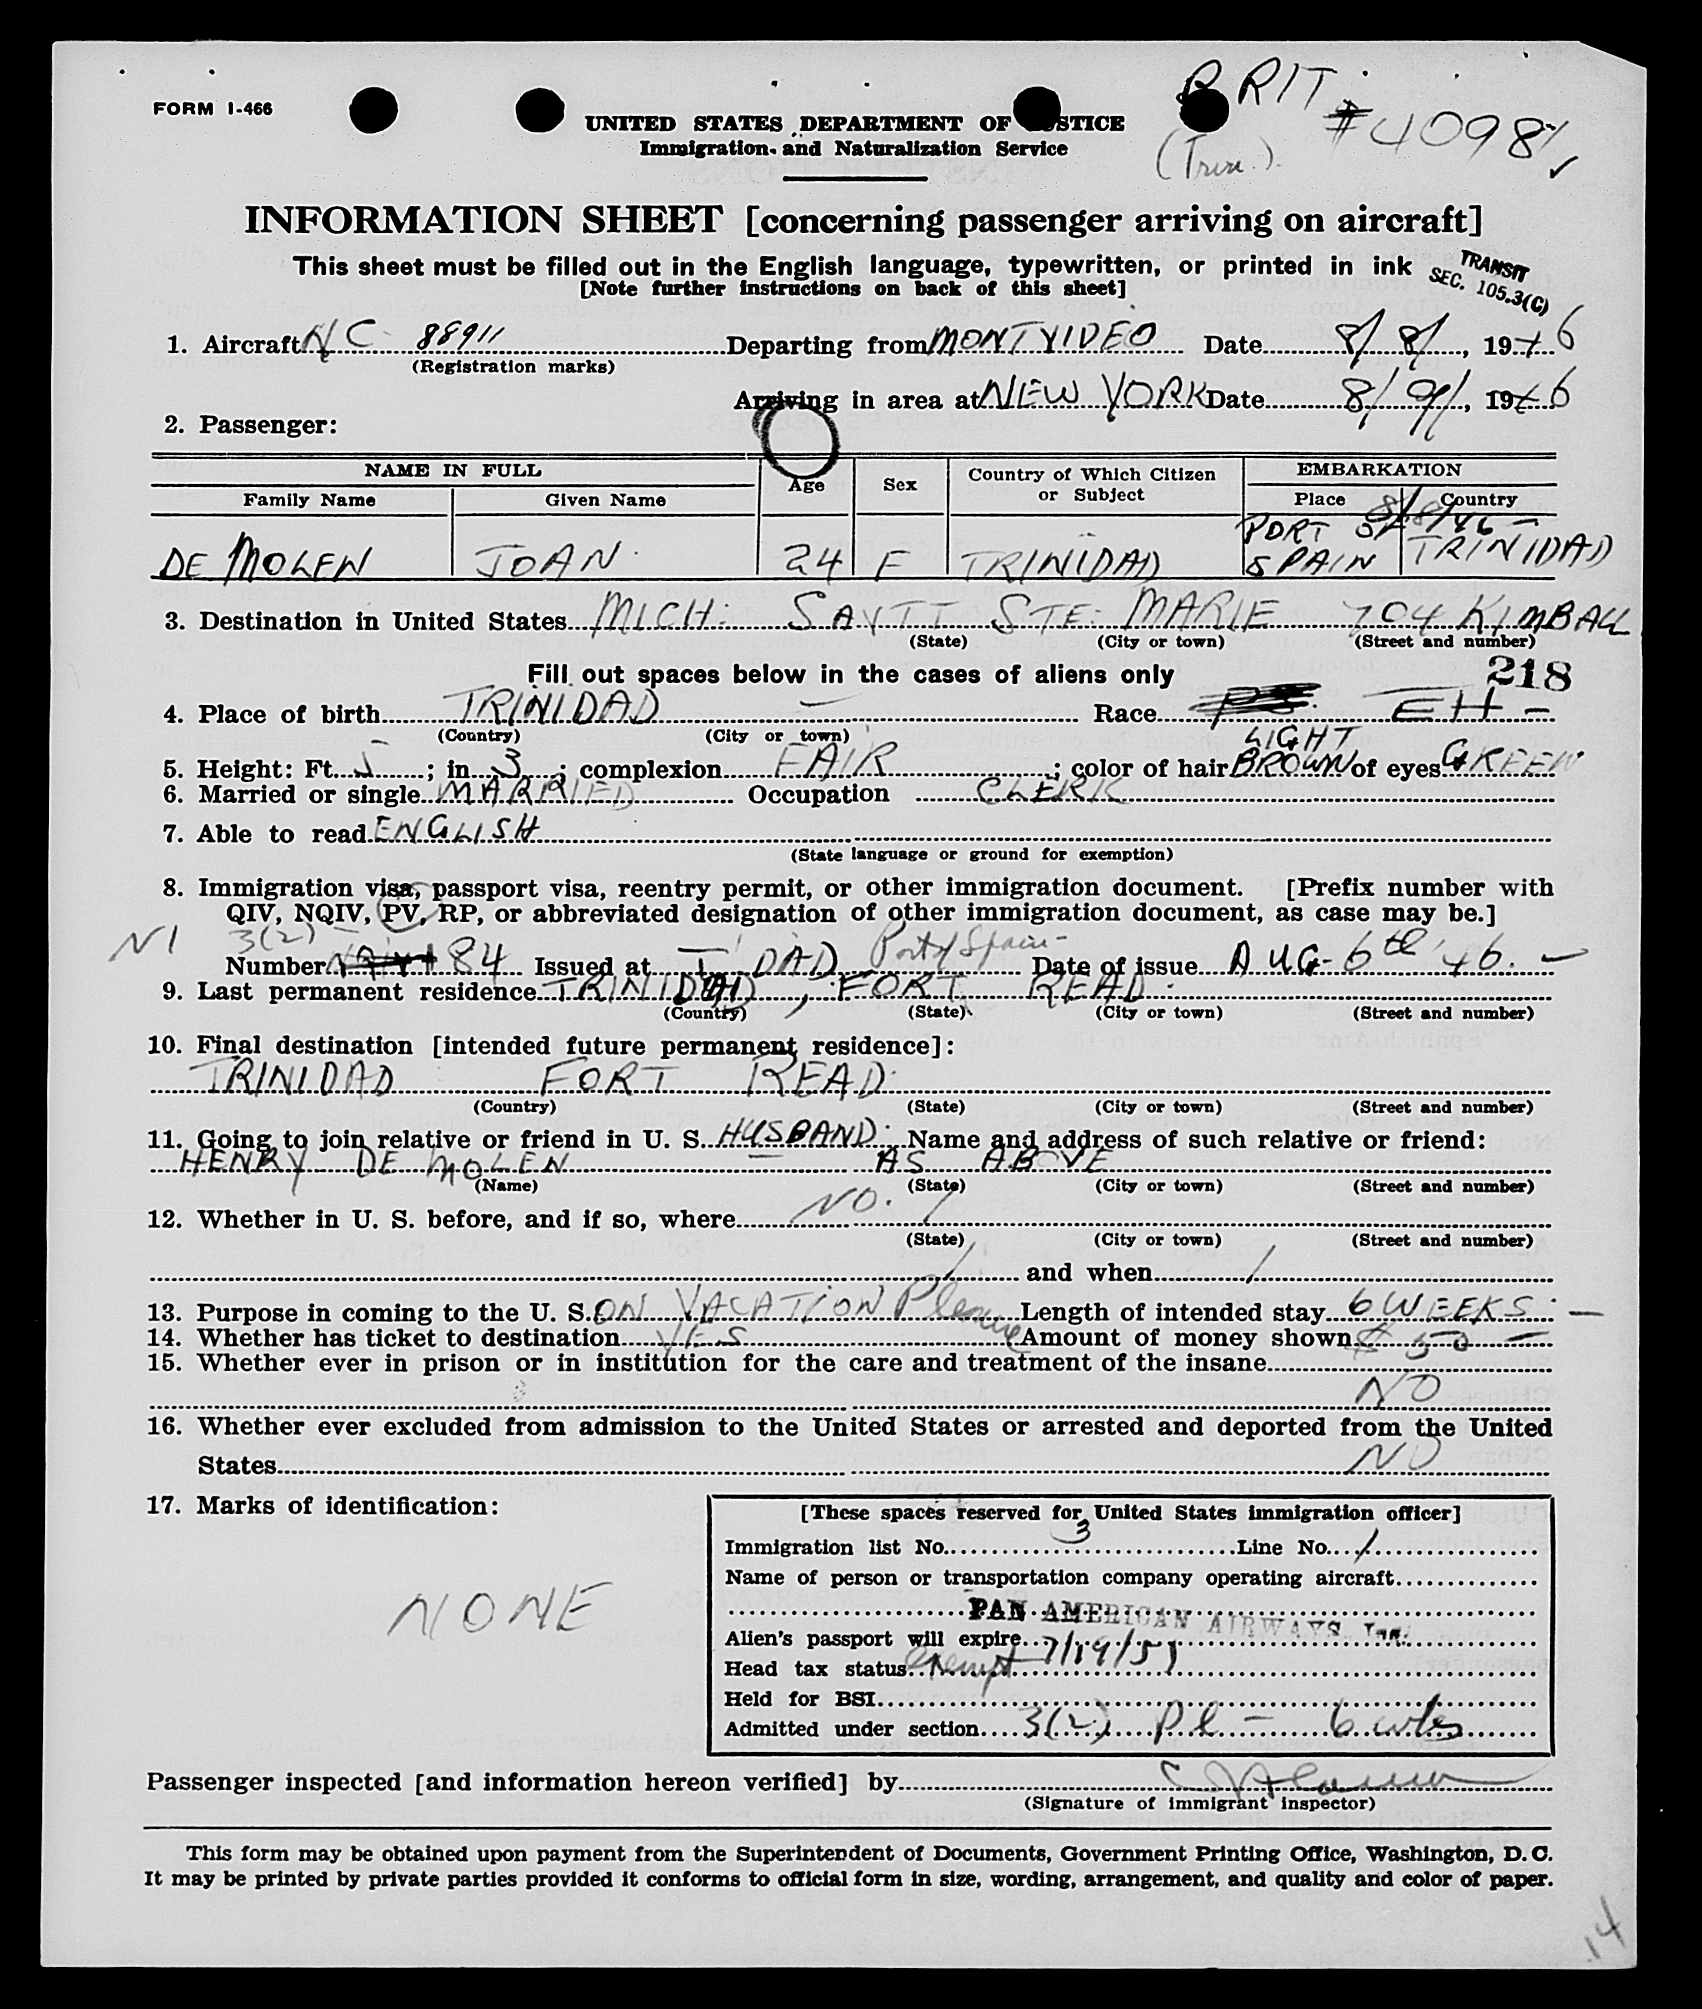 BRIT.
FORM I-466
UNITED STATES DEPARTMENT OF JUSTICE
#4098
Immigration and Naturalization Service
(Trin.)
INFORMATION SHEET [concerning passenger arriving on aircraft]
This sheet must be filled out in the English language, typewritten, or printed in ink
TRANSIT
SEC. 105.3(C)
[Note further instructions on back of this sheet]
1. Aircraft NC 88911 Departing from MONTVIDEO Date 8/8/, 1946
(Registration marks)
Arriving in area at NEW YORK Date 8/9/, 1946
2. Passenger:
NAME IN FULL Age Sex Country of Which Citizen or Subject EMBARKATION
Family Name Given Name Place Country
8/8/46 -
DE MOLEN JOAN 24 F TRINIDAD PORT OF SPAIN TRINIDAD
3. Destination in United States MICH: SAVTT STE: MARIE 704 KIMBALL
(State) (City or town) (Street and number)
Fill out spaces below in the cases of aliens only 218
4. Place of birth TRINIDAD - Race EH -
(Country) (City or town)
5. Height: Ft. 5 ; in. 3 ; complexion FAIR ; color of hair LIGHT BROWN of eyes GREEN
6. Married or single MARRIED Occupation CLERK
7. Able to read ENGLISH
(State language or ground for exemption)
8. Immigration visa, passport visa, reentry permit, or other immigration document. [Prefix number with
QIV, NQIV, PV, RP, or abbreviated designation of other immigration document, as case may be.]
NI 3(2) -
Number 84 Issued at T'DAD Port of Spain - Date of issue AUG- 6th '46. -
9. Last permanent residence TRINIDAD, FORT READ.
(Country) (State) (City or town) (Street and number)
10. Final destination [intended future permanent residence]:
TRINIDAD FORT READ.
(Country) (State) (City or town) (Street and number)
11. Going to join relative or friend in U. S. HUSBAND. Name and address of such relative or friend:
HENRY DE MOLEN AS ABOVE
(Name) (State) (City or town) (Street and number)
12. Whether in U. S. before, and if so, where NO. /
(State) (City or town) (Street and number)
/ and when /
13. Purpose in coming to the U. S. ON VACATION Pleasure Length of intended stay 6 WEEKS. -
14. Whether has ticket to destination YES Amount of money shown $ 50 -
15. Whether ever in prison or in institution for the care and treatment of the insane
NO
16. Whether ever excluded from admission to the United States or arrested and deported from the United
States NO
17. Marks of identification:
NONE
[These spaces reserved for United States immigration officer]
Immigration list No. 3 Line No. 1
Name of person or transportation company operating aircraft
PAN AMERICAN AIRWAYS, Inc.
Alien's passport will expire 7/19/51
Head tax status Exempt
Held for BSI
Admitted under section 3(2) Pl - 6 wks
Passenger inspected [and information hereon verified] by
(Signature of immigrant inspector)
This form may be obtained upon payment from the Superintendent of Documents, Government Printing Office, Washington, D. C.
It may be printed by private parties provided it conforms to official form in size, wording, arrangement, and quality and color of paper.
14